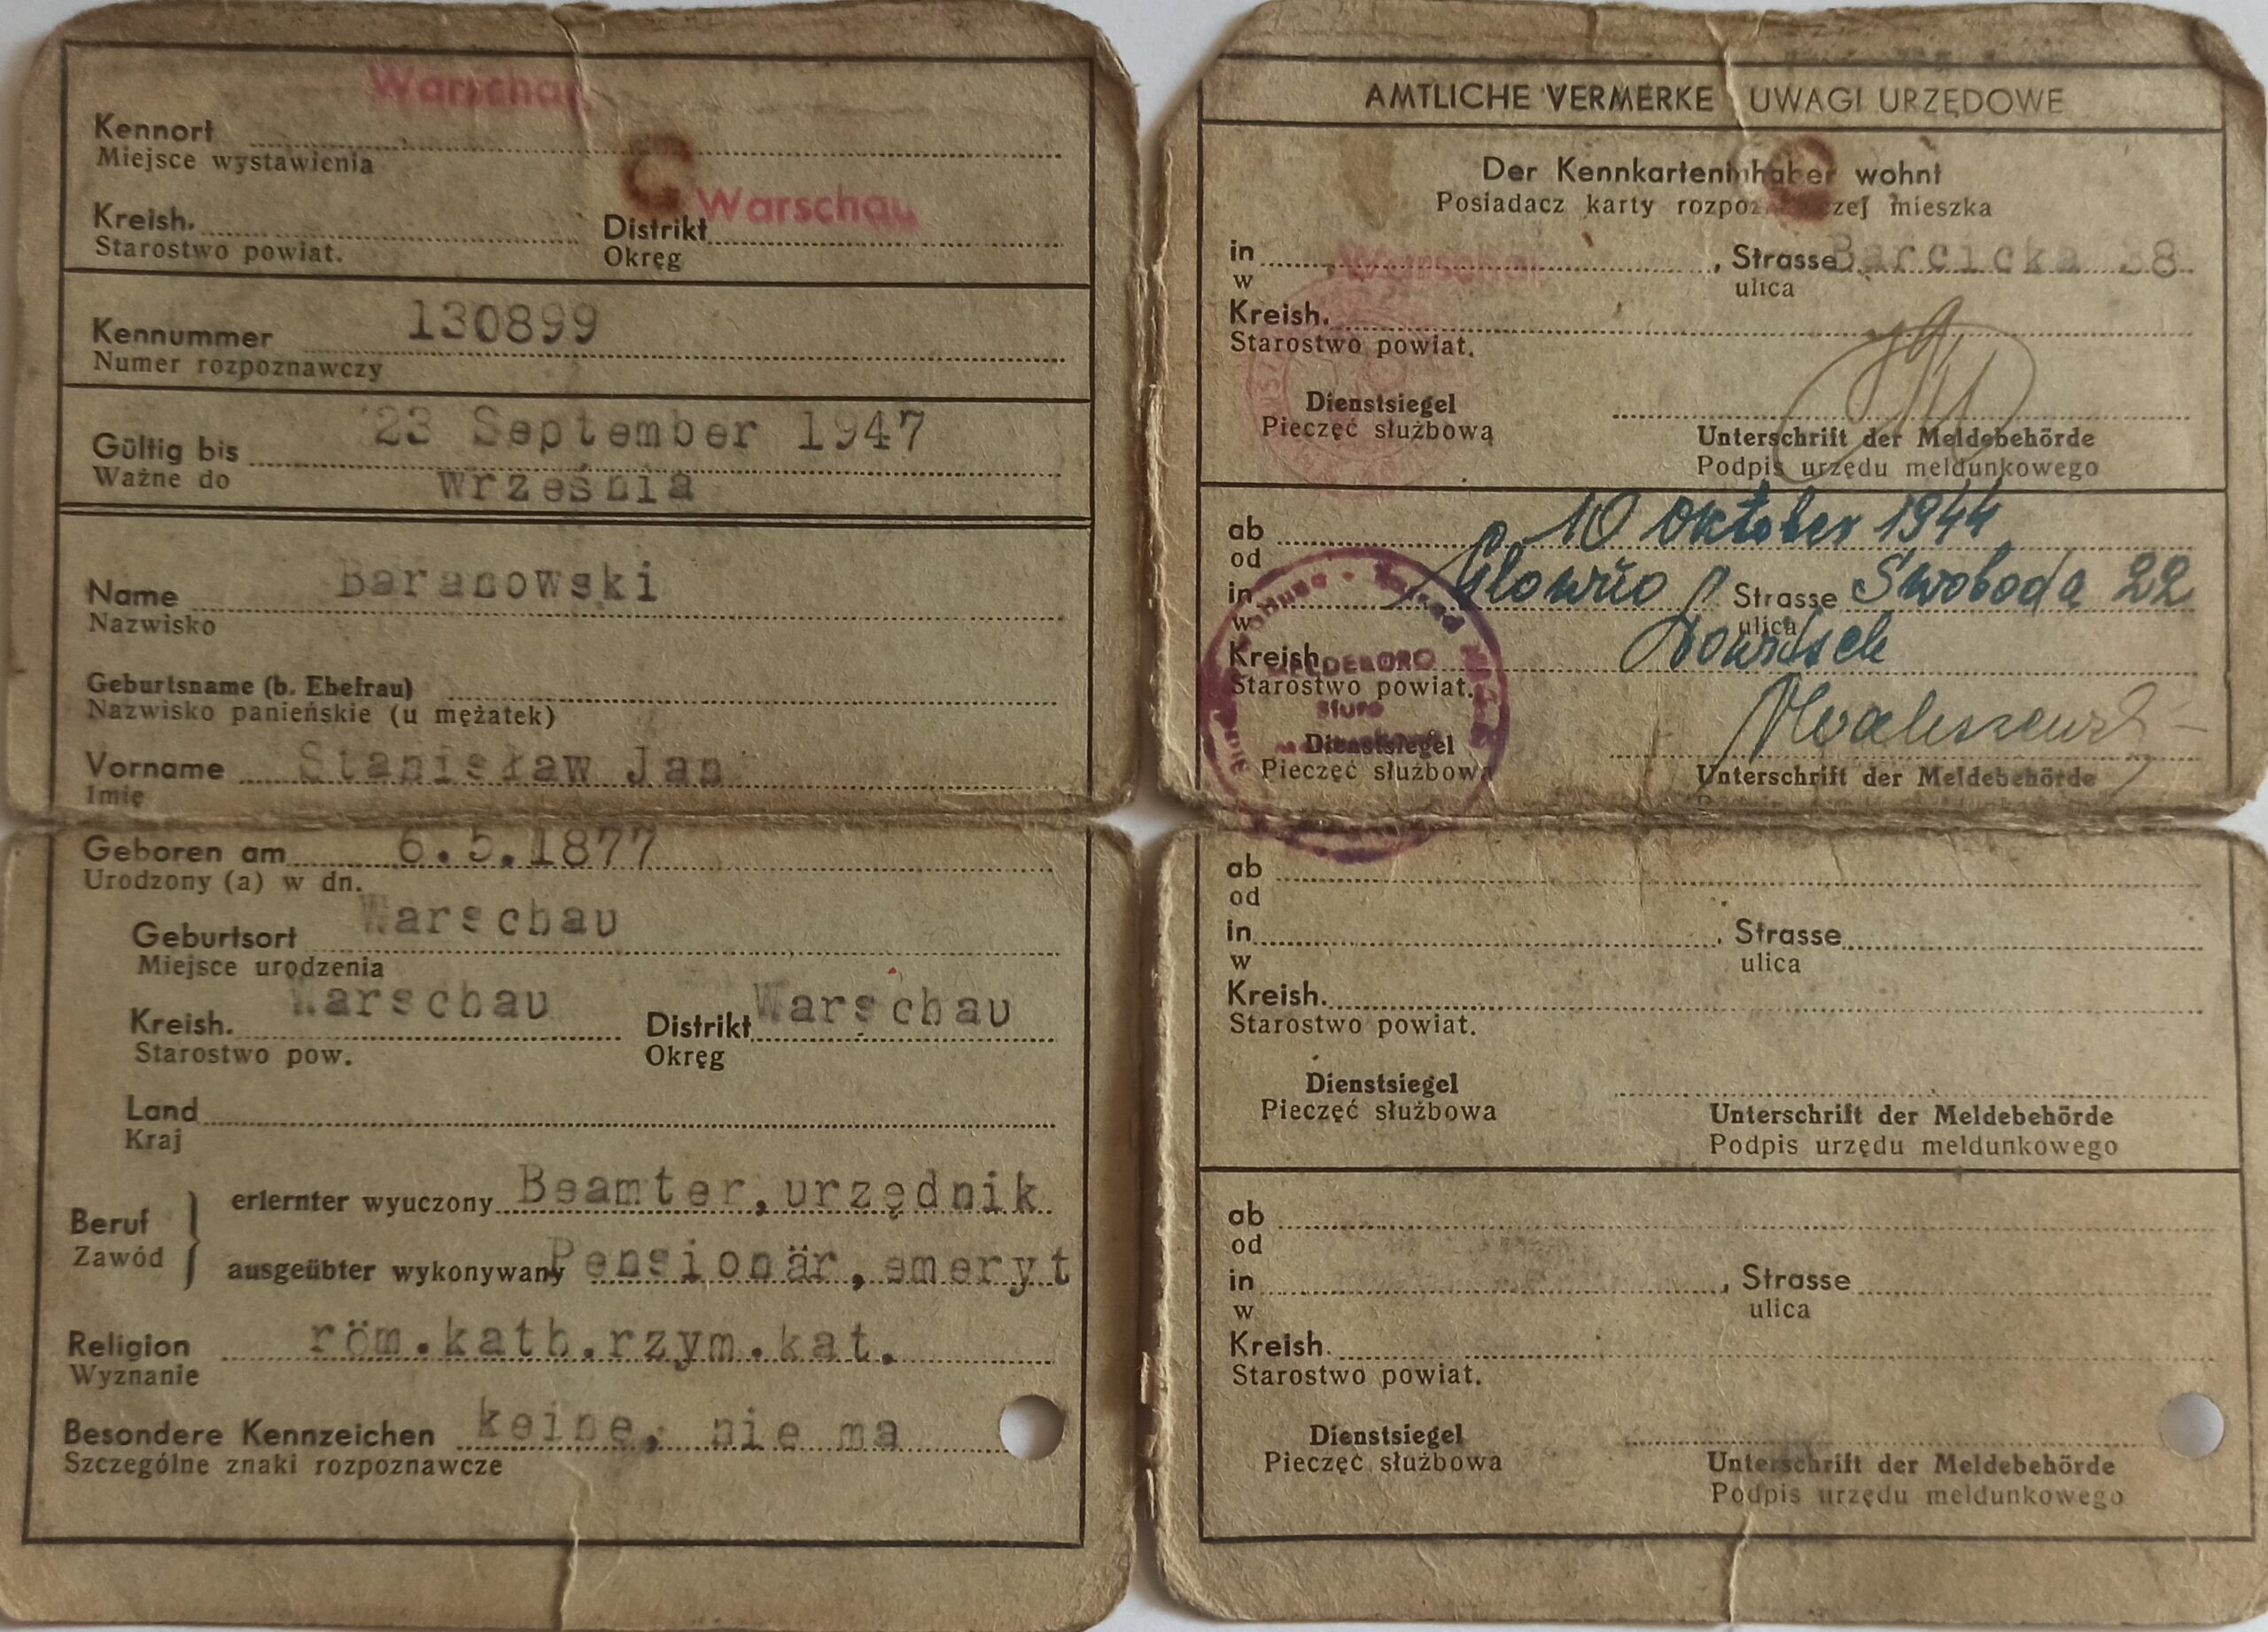 Warschau
Kennort
Miejsce wystawienia
Warschau
Kreish. Distrikt
Starostwo powiat. Okręg
Kennummer 130899
Numer rozpoznawczy
Gültig bis 23 September 1947
Ważne do września
Name Baranowski
Nazwisko
Geburtsname (b. Ehefrau)
Nazwisko panieńskie (u mężatek)
Vorname Stanisław Jan
Imię
Geboren am 6.5.1877
Urodzony (a) w dn.
Geburtsort Warschau
Miejsce urodzenia
Kreish. Warschau Distrikt Warschau
Starostwo pow. Okręg
Land
Kraj
Beruf erlernter wyuczony Beamter, urzędnik
Zawód ausgeübter wykonywany Pensionär, emeryt
Religion röm.kath.rzym.kat.
Wyznanie
Besondere Kennzeichen keine, nie ma
Szczególne znaki rozpoznawcze
AMTLICHE VERMERKE UWAGI URZĘDOWE
Der Kennkarteninhaber wohnt
Posiadacz karty rozpoznawczej mieszka
in Warschau, Strasse Barcicka 38
w ulica
Kreish.
Starostwo powiat.
Dienstsiegel
Pieczęć służbowa
Unterschrift der Meldebehörde
Podpis urzędu meldunkowego
ab 10 Oktober 1944
od
in Glowno, Strasse Swoboda 22
w ulica
Kreish. Lowitsch
Starostwo powiat.
MELDEBÜRO
Biuro
Dienstsiegel
Pieczęć służbowa
Unterschrift der Meldebehörde
ab
od
in , Strasse
w ulica
Kreish.
Starostwo powiat.
Dienstsiegel
Pieczęć służbowa
Unterschrift der Meldebehörde
Podpis urzędu meldunkowego
ab
od
in , Strasse
w ulica
Kreish.
Starostwo powiat.
Dienstsiegel
Pieczęć służbowa
Unterschrift der Meldebehörde
Podpis urzędu meldunkowego